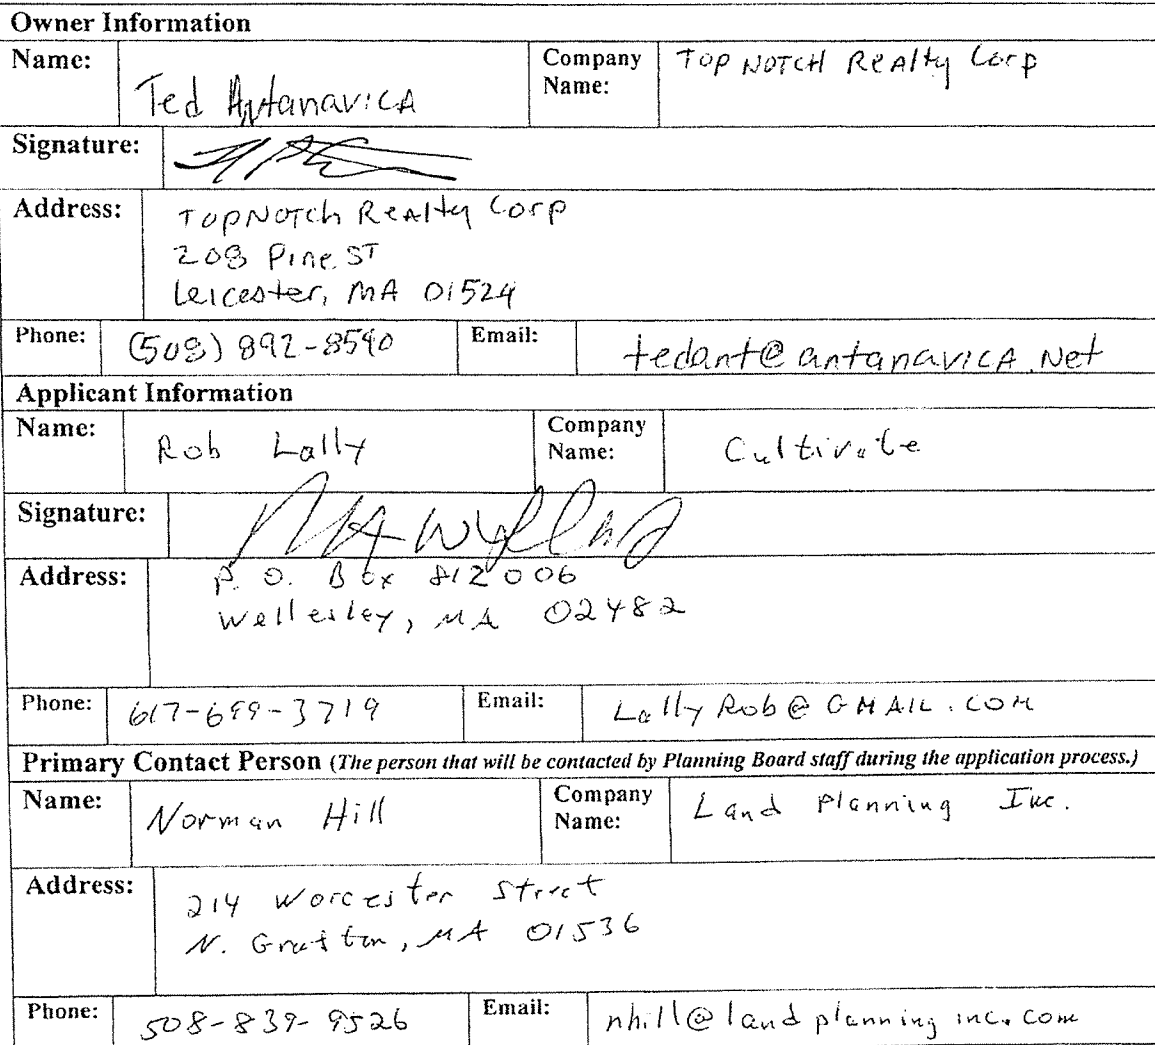 Owner Information
Name: Ted Antanavica Company Name: Top Notch Realty Corp
Signature:
Address: TopNotch Realty Corp
208 Pine ST
Leicester, MA 01524
Phone: (508) 892-8590 Email: tedant@antanavica.net
Applicant Information
Name: Rob Lally Company Name: Cultivate
Signature:
Address: P.O. Box 812006
Wellesley, MA 02482
Phone: 617-699-3719 Email: LallyRob@GMAIL.COM
Primary Contact Person (The person that will be contacted by Planning Board staff during the application process.)
Name: Norman Hill Company Name: Land Planning Inc.
Address: 214 Worcester Street
N. Grafton, MA 01536
Phone: 508-839-9526 Email: nhill@landplanninginc.com